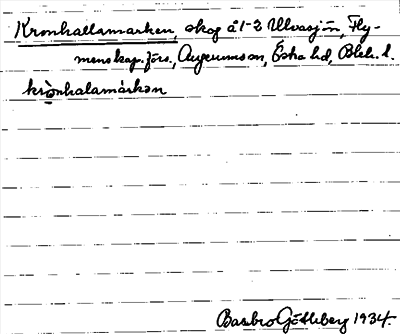 Kronhallamarken, skog å 1-2 Ullvasjön, Fly-
menskap. förs., Augerums sn, Östra hd, Blek. l.
krònhalamàrkən
Barbro Götheberg 1934.